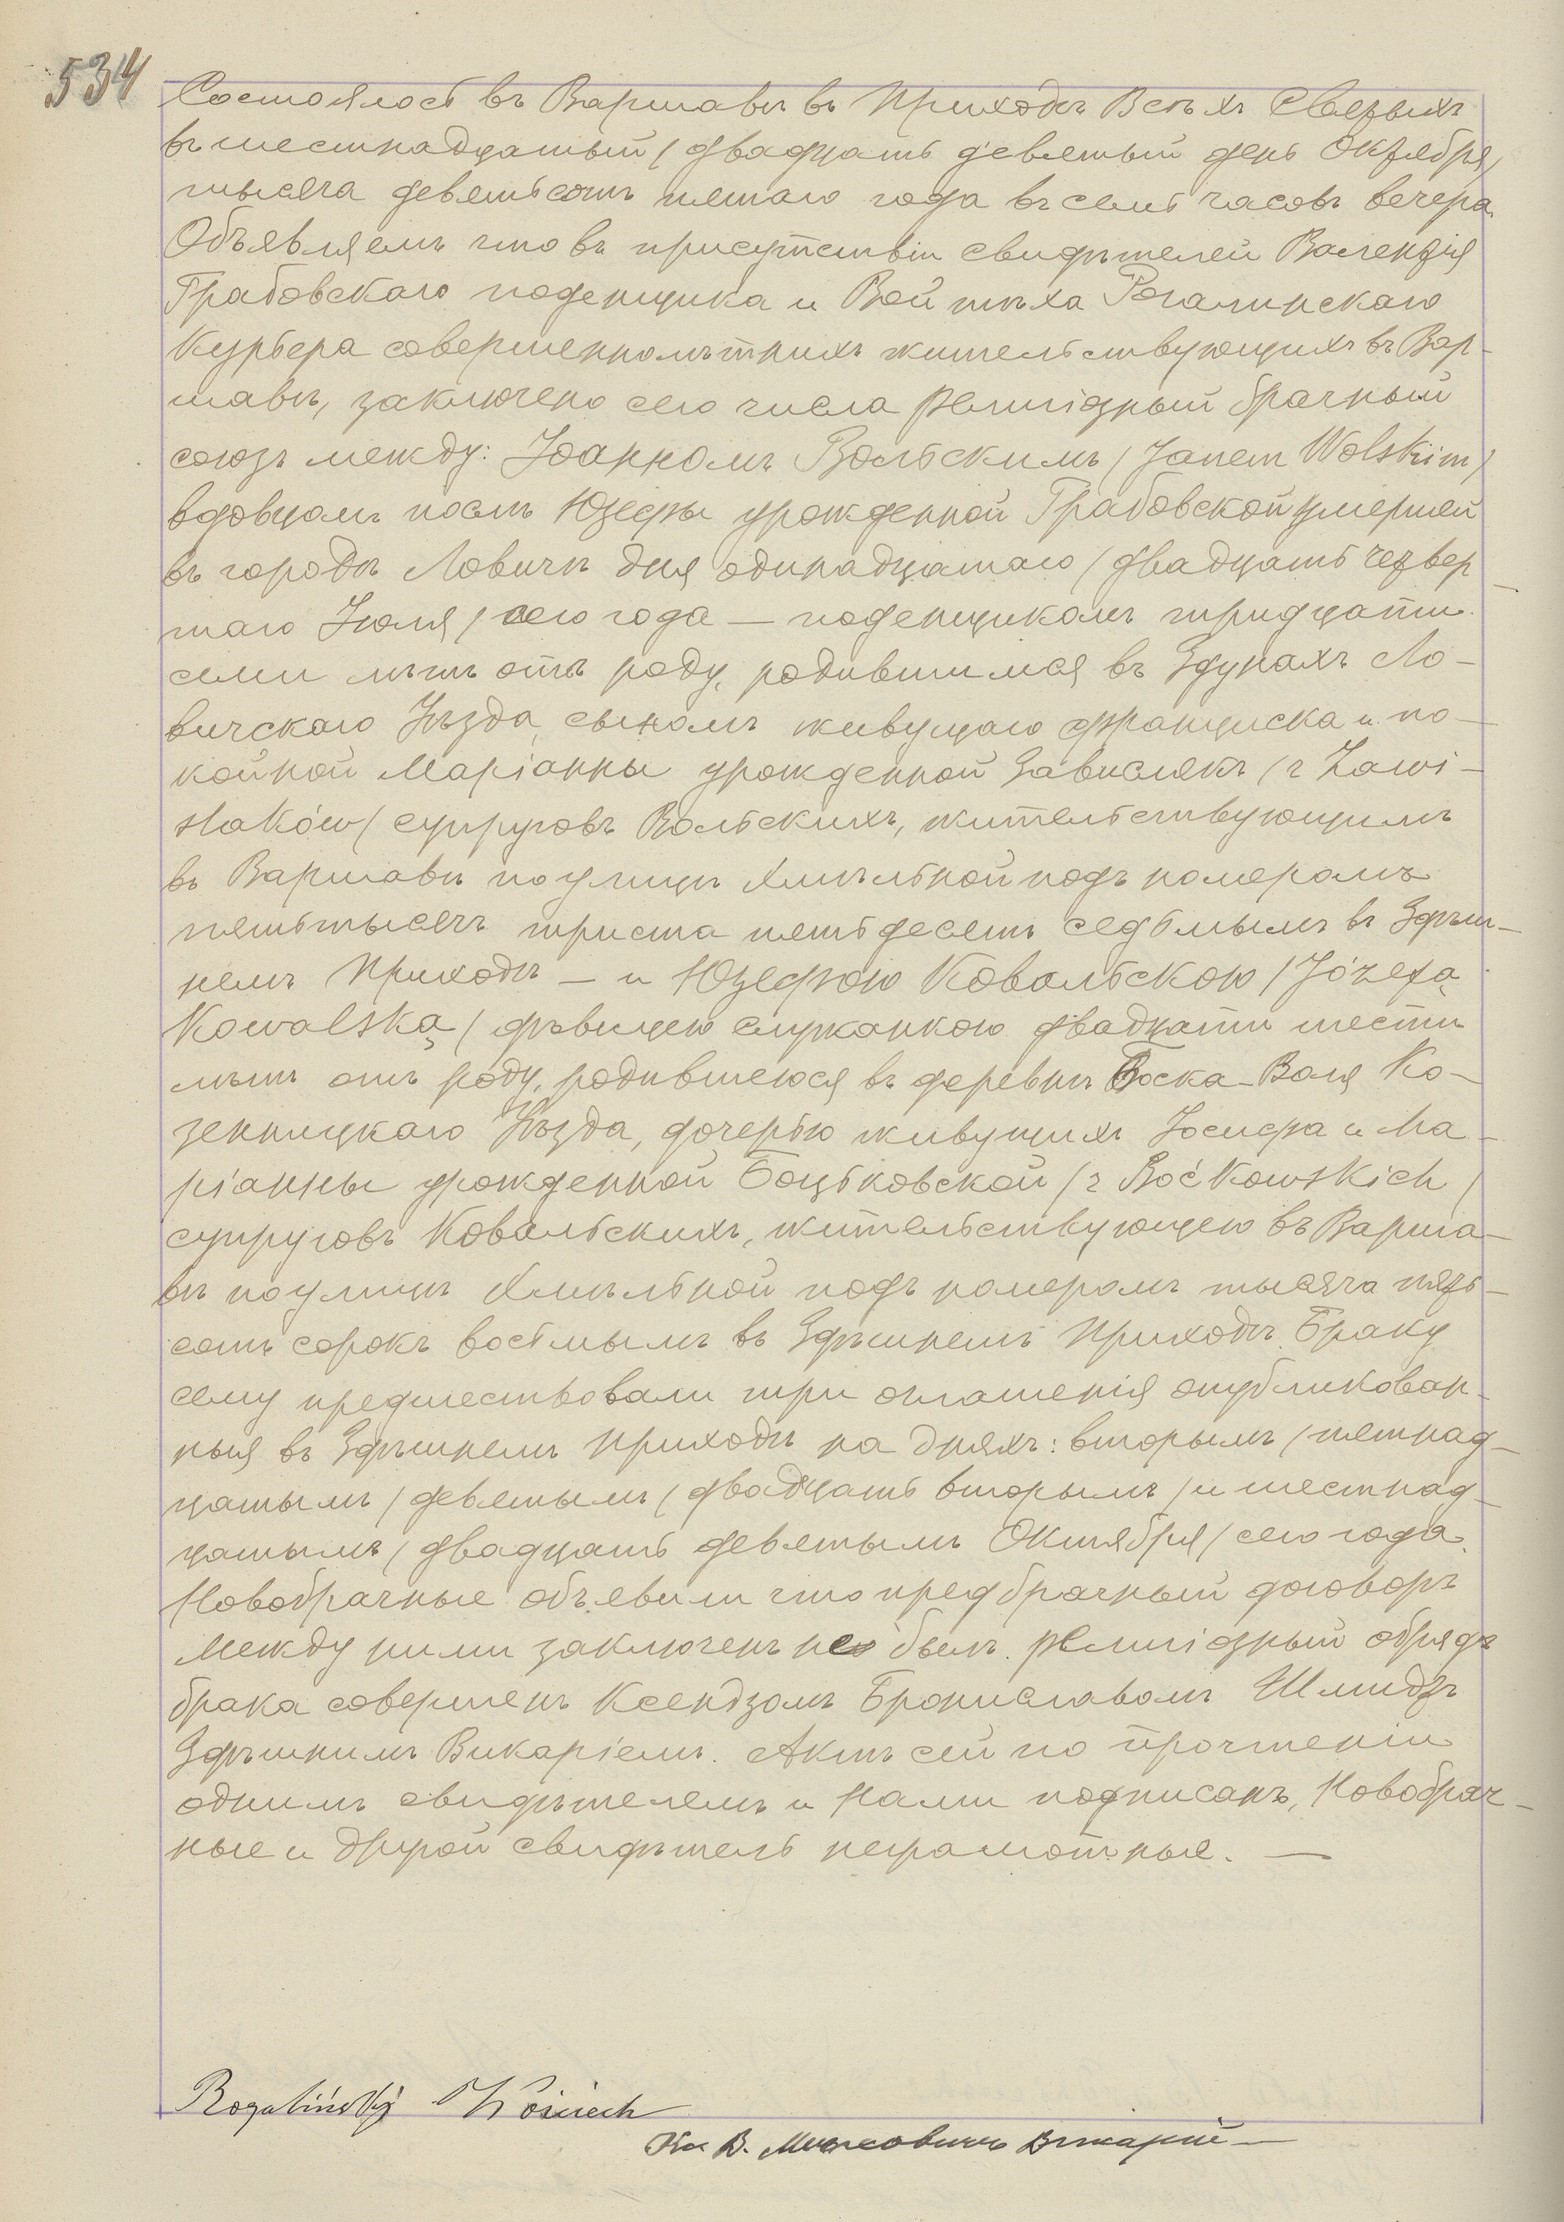 534
Состоялось въ Варшавѣ въ Приходѣ Всѣхъ Святыхъ
въ шестнадцатый / двадцать девятый день Октября /
тысяча девятьсотъ пятаго года въ семь часовъ вечера.
Объявляемъ что въ присутствіи свидѣтелей Валентія
Грабовскаго поденщика и Войтѣха Рогалинскаго
Курьера совершеннолѣтнихъ жительствующихъ въ Вар-
шавѣ, заключено сего числа религіозный брачный
союзъ между: Іоанномъ Вольскимъ / Janem Wolskim /
вдовцомъ послѣ Юзефы урожденной Грабовской умершей
въ городѣ Ловичѣ дня одинадцатаго / двадцать четвер-
таго Іюля / сего года — поденщикомъ тридцати
семи лѣтъ отъ роду, родившимся въ Здунахъ Ло-
вичскаго Уѣзда, сыномъ живущаго Франциска и по-
койной Маріанны урожденной Завислякъ / z Zawi-
ślaków / супруговъ Вольскихъ, жительствующимъ
въ Варшавѣ по улицѣ Хмѣльной подъ номеромъ
пятьтысячъ триста пятьдесятъ седьмымъ въ Здѣш-
немъ Приходѣ — и Юзефою Ковальскою / Józefą
Kowalską / дѣвицею служанкою двадцати шести
лѣтъ отъ роду, родившеюся въ деревнѣ Боска-Воля Ко-
зенницкаго Уѣзда, дочерью живущихъ Іосифа и Ма-
ріанны урожденной Боцьковской / z Boćkowskich /
супруговъ Ковальскихъ, жительствующею въ Варша-
вѣ по улицѣ Хмѣльной подъ номеромъ тысяча пять-
сотъ сорокъ восьмымъ въ Здѣшнемъ Приходѣ. Браку
сему предшествовали три оглашенія опубликован-
ныя въ Здѣшнемъ Приходѣ на дняхъ: вторымъ / пятнад-
цатымъ / девятымъ / двадцать вторымъ / и шестнад-
цатымъ / двадцать девятымъ Октября / сего года.
Новобрачные объявили что предбрачный договоръ
между ними заключенъ не былъ. Религіозный обрядъ
брака совершенъ Ксендзомъ Брониславомъ Шмидтъ
Здѣшнимъ Викаріемъ. Актъ сей по прочтеніи
однимъ свидѣтелемъ и Нами подписанъ, Новобрач-
ные и другой свидѣтель неграмотные. —
Rogaliński Wojciech
Кс В. Викарій —